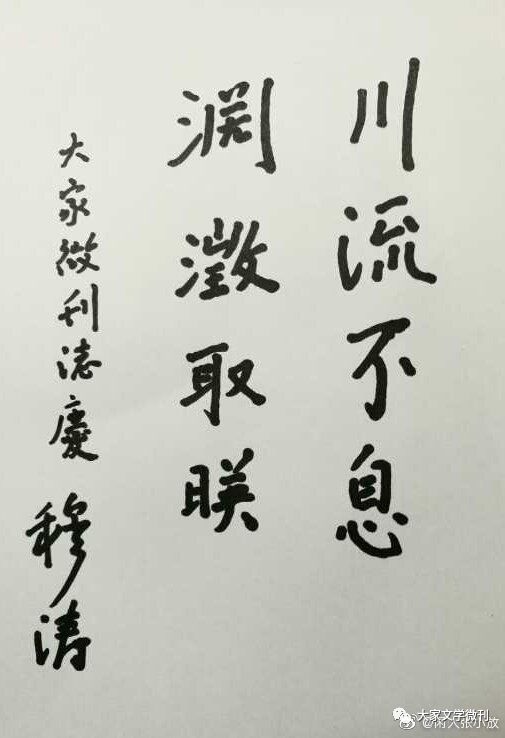 川流不息
渊澂取暎
大家微刊誌慶
穆涛
大家文学微刊
张小放